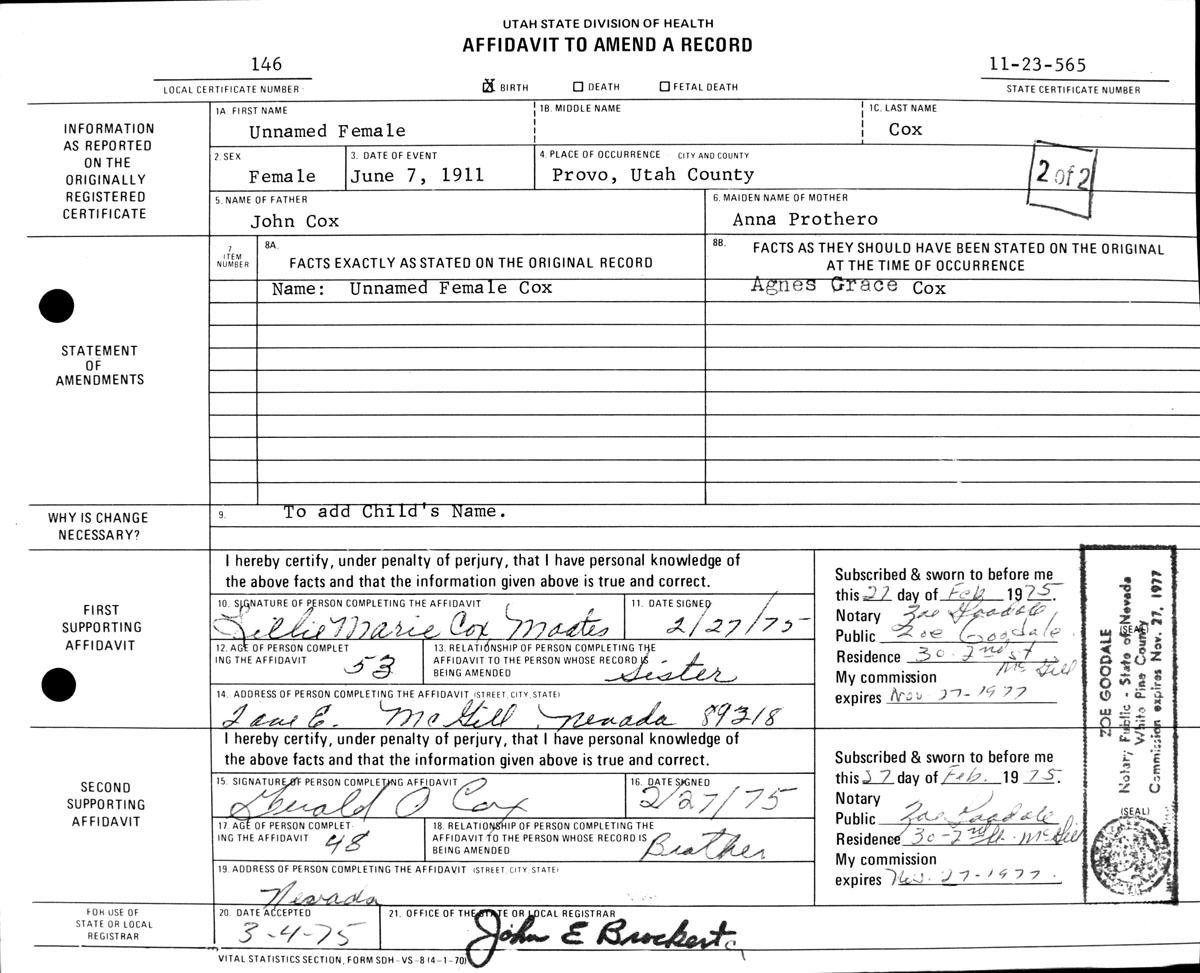 UTAH STATE DIVISION OF HEALTH
AFFIDAVIT TO AMEND A RECORD
146
LOCAL CERTIFICATE NUMBER
☒ BIRTH ☐ DEATH ☐ FETAL DEATH
11-23-565
STATE CERTIFICATE NUMBER
INFORMATION
AS REPORTED
ON THE
ORIGINALLY
REGISTERED
CERTIFICATE
1A. FIRST NAME
Unnamed Female
1B. MIDDLE NAME
1C. LAST NAME
Cox
2. SEX
Female
3. DATE OF EVENT
June 7, 1911
4. PLACE OF OCCURRENCE CITY AND COUNTY
Provo, Utah County
2 of 2
5. NAME OF FATHER
John Cox
6. MAIDEN NAME OF MOTHER
Anna Prothero
STATEMENT
OF
AMENDMENTS
7
ITEM
NUMBER
8A.
FACTS EXACTLY AS STATED ON THE ORIGINAL RECORD
8B. FACTS AS THEY SHOULD HAVE BEEN STATED ON THE ORIGINAL
AT THE TIME OF OCCURRENCE
Name: Unnamed Female Cox
Agnes Grace Cox
WHY IS CHANGE
NECESSARY?
9. To add Child's Name.
FIRST
SUPPORTING
AFFIDAVIT
I hereby certify, under penalty of perjury, that I have personal knowledge of
the above facts and that the information given above is true and correct.
10. SIGNATURE OF PERSON COMPLETING THE AFFIDAVIT
Lillie Marie Cox Moates
11. DATE SIGNED
2/27/75
12. AGE OF PERSON COMPLET
ING THE AFFIDAVIT 53
13. RELATIONSHIP OF PERSON COMPLETING THE
AFFIDAVIT TO THE PERSON WHOSE RECORD IS
BEING AMENDED Sister
14. ADDRESS OF PERSON COMPLETING THE AFFIDAVIT (STREET, CITY, STATE)
McGill Nevada 89318
Subscribed & sworn to before me
this 27 day of Feb 1975.
Notary Zoe Goodale
Public Zoe Goodale
Residence 30-2nd St.
McGill
My commission
expires Nov-27-1977
SECOND
SUPPORTING
AFFIDAVIT
I hereby certify, under penalty of perjury, that I have personal knowledge of
the above facts and that the information given above is true and correct.
15. SIGNATURE OF PERSON COMPLETING AFFIDAVIT
Gerald O Cox
16. DATE SIGNED
2/27/75
17. AGE OF PERSON COMPLET-
ING THE AFFIDAVIT 48
18. RELATIONSHIP OF PERSON COMPLETING THE
AFFIDAVIT TO THE PERSON WHOSE RECORD IS
BEING AMENDED Brother
19. ADDRESS OF PERSON COMPLETING THE AFFIDAVIT (STREET, CITY, STATE)
Nevada
Subscribed & sworn to before me
this 27 day of Feb. 1975.
Notary
Public Zoe Goodale
Residence 30-2nd St. McGill
My commission
expires Nov-27-1977.
ZOE GOODALE
Notary Public - State of Nevada
White Pine County
Commission expires Nov. 27, 1977
(SEAL)
(SEAL)
FOR USE OF
STATE OR LOCAL
REGISTRAR
20. DATE ACCEPTED
3-4-75
21. OFFICE OF THE STATE OR LOCAL REGISTRAR
John E Brockert
VITAL STATISTICS SECTION, FORM SDH-VS-8 (4-1-70)